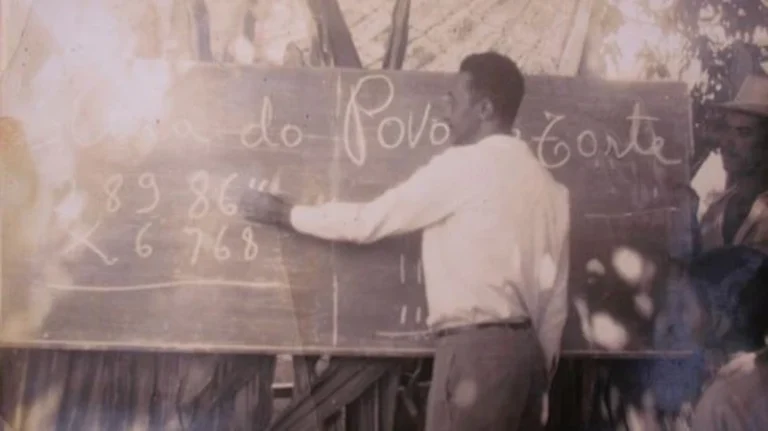 do Povo é forte
89 86
× 6 768